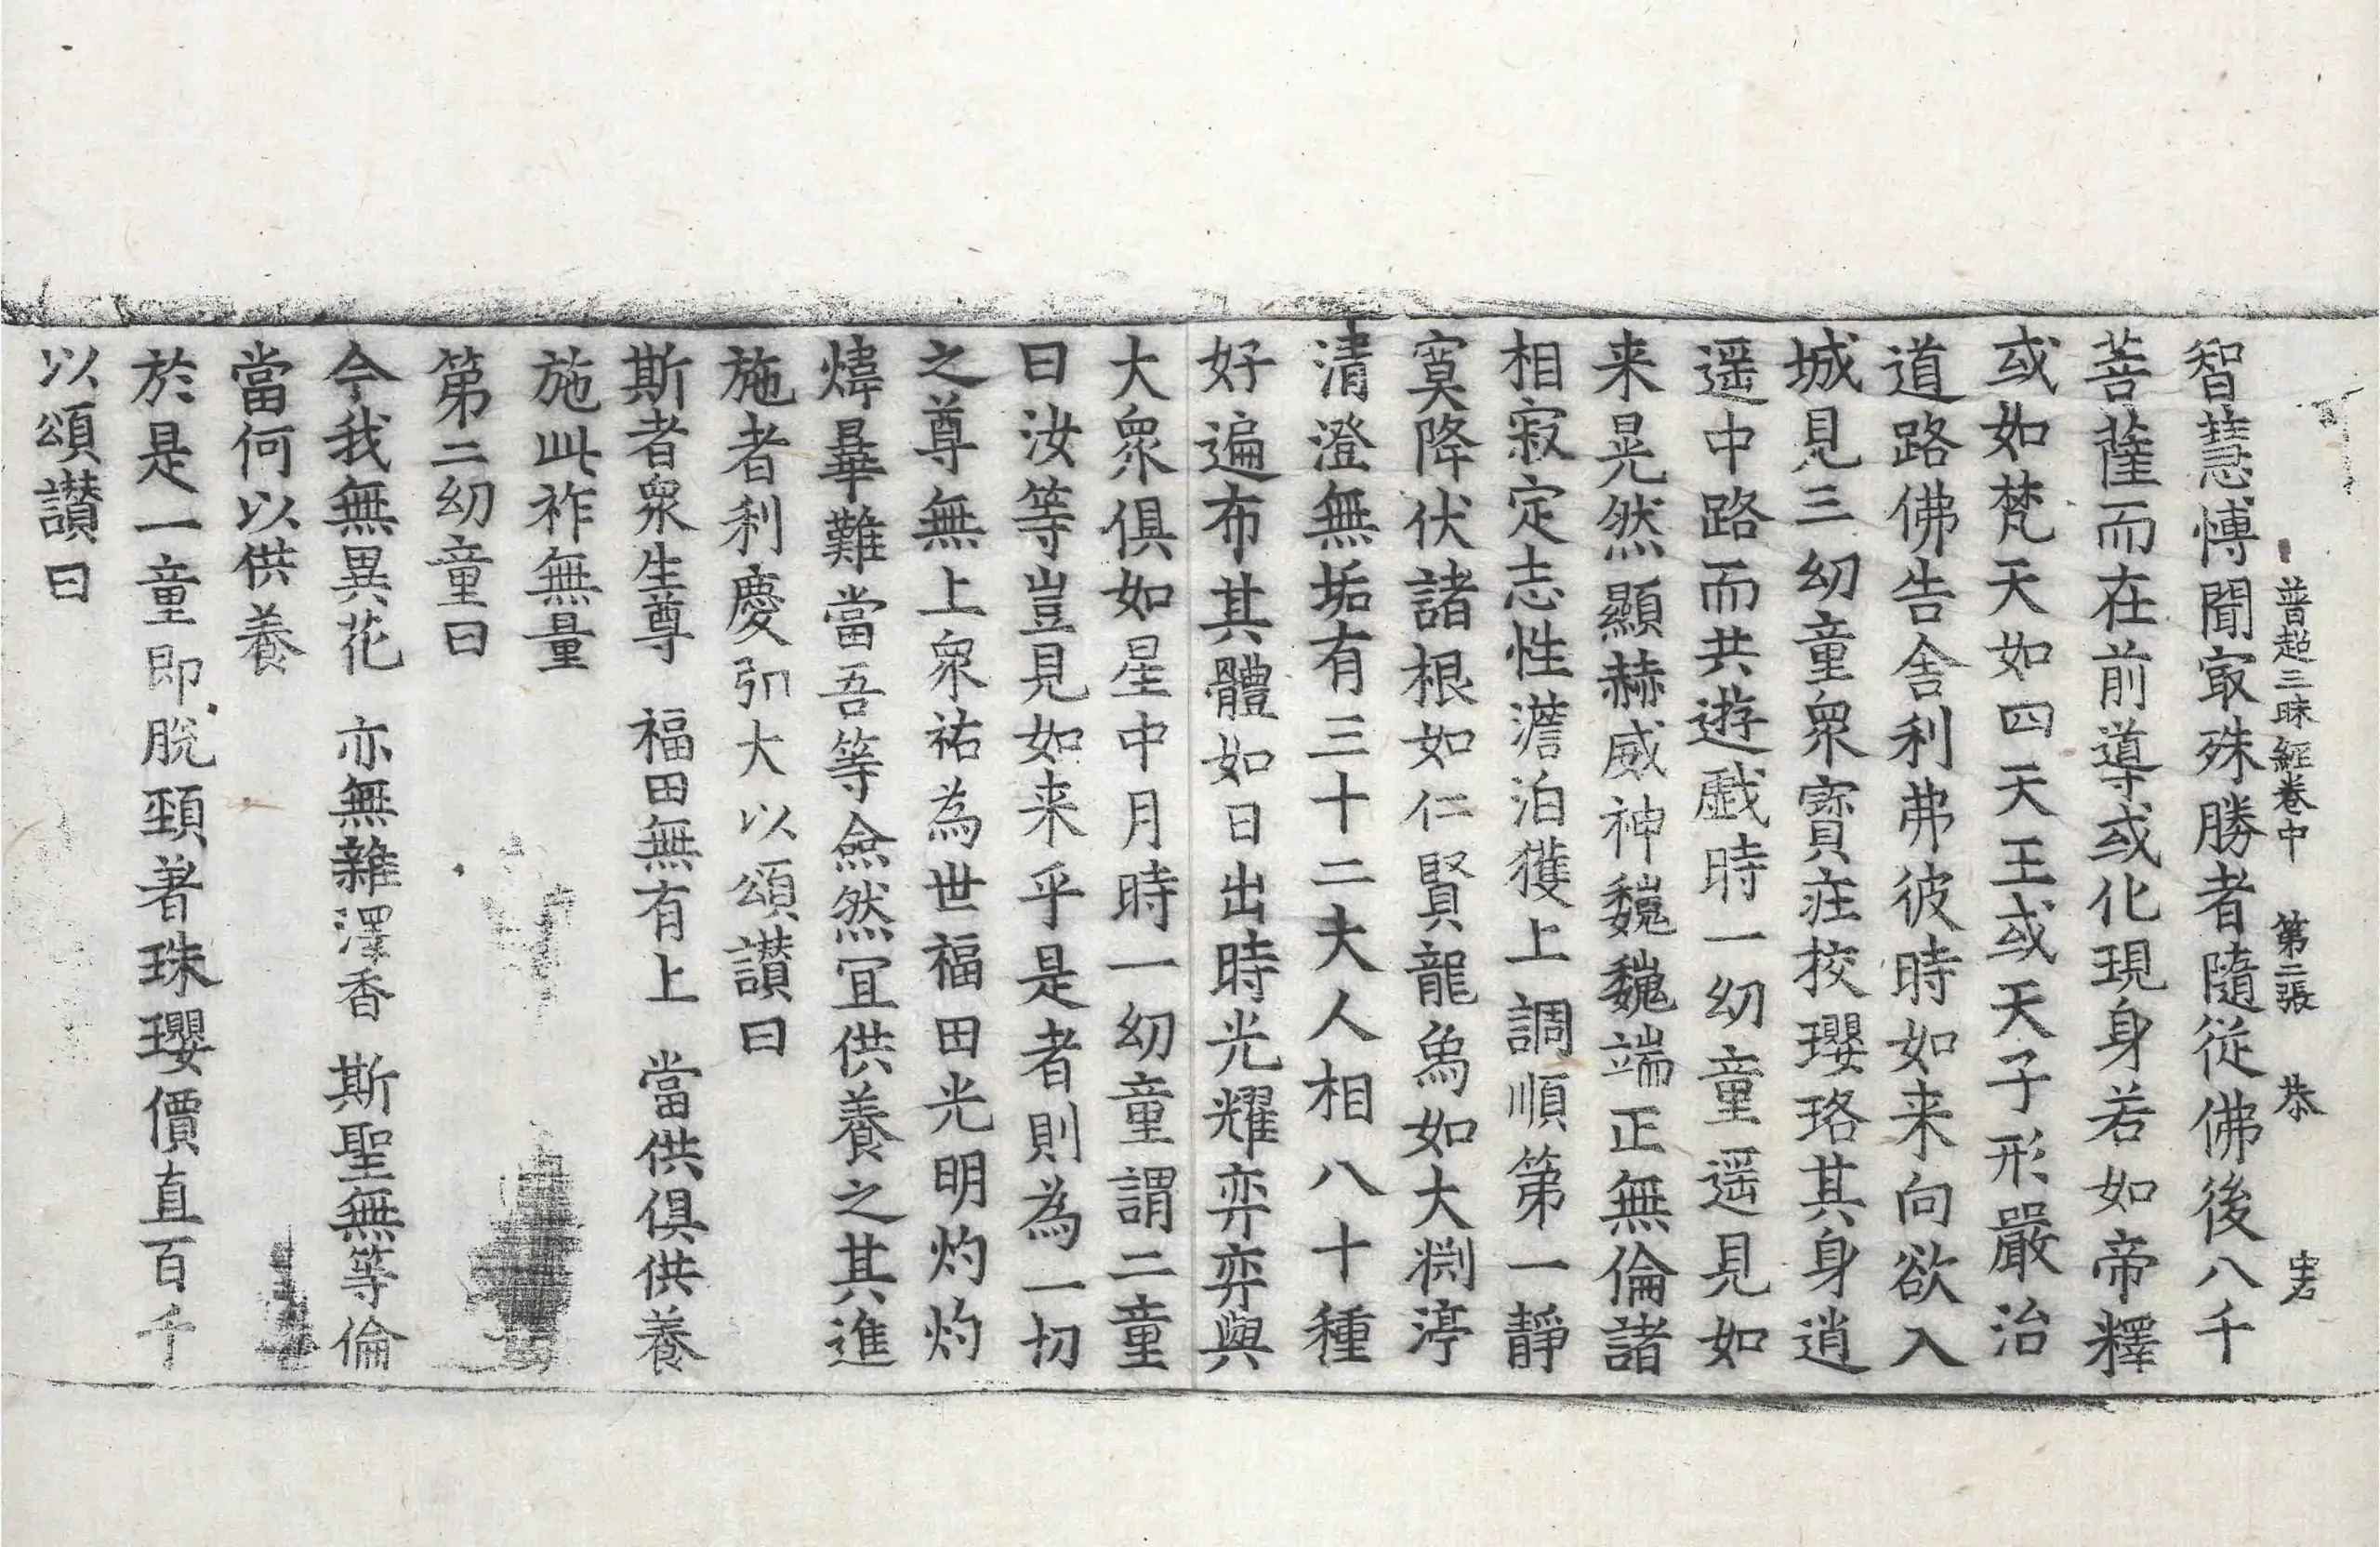 普超三昧經卷中　第二張　恭
智慧愽聞㝡殊勝者隨從佛後八千
菩薩而在前導或化現身若如帝釋
或如梵天如四天王或天子形嚴治
道路佛告舍利弗彼時如来向欲入
城見三㓜童衆寶莊挍瓔珞其身逍
遥中路而共遊戱時一㓜童遥見如
来晃然顯赫威神巍巍端正無倫諸
相寂定志性澹泊獲上調順第一靜
寞降伏諸根如仁賢龍象如大渕渟
清澄無垢有三十二大人相八十種
好遍布其體如日出時光耀弈弈與
大衆俱如星中月時一㓜童謂二童
曰汝等豈見如来乎是者則為一切
之尊無上衆祐為世福田光明灼灼
煒曄難當吾等僉然宜供養之其進
施者利慶弘大以頌讃曰
斯者衆生尊　福田無有上　當供俱供養
施此祚無量
第二㓜童曰
今我無異花　亦無雜澤香　斯聖無等倫
當何以供養
於是一童即脫頚著珠瓔價直百千
以頌讃曰